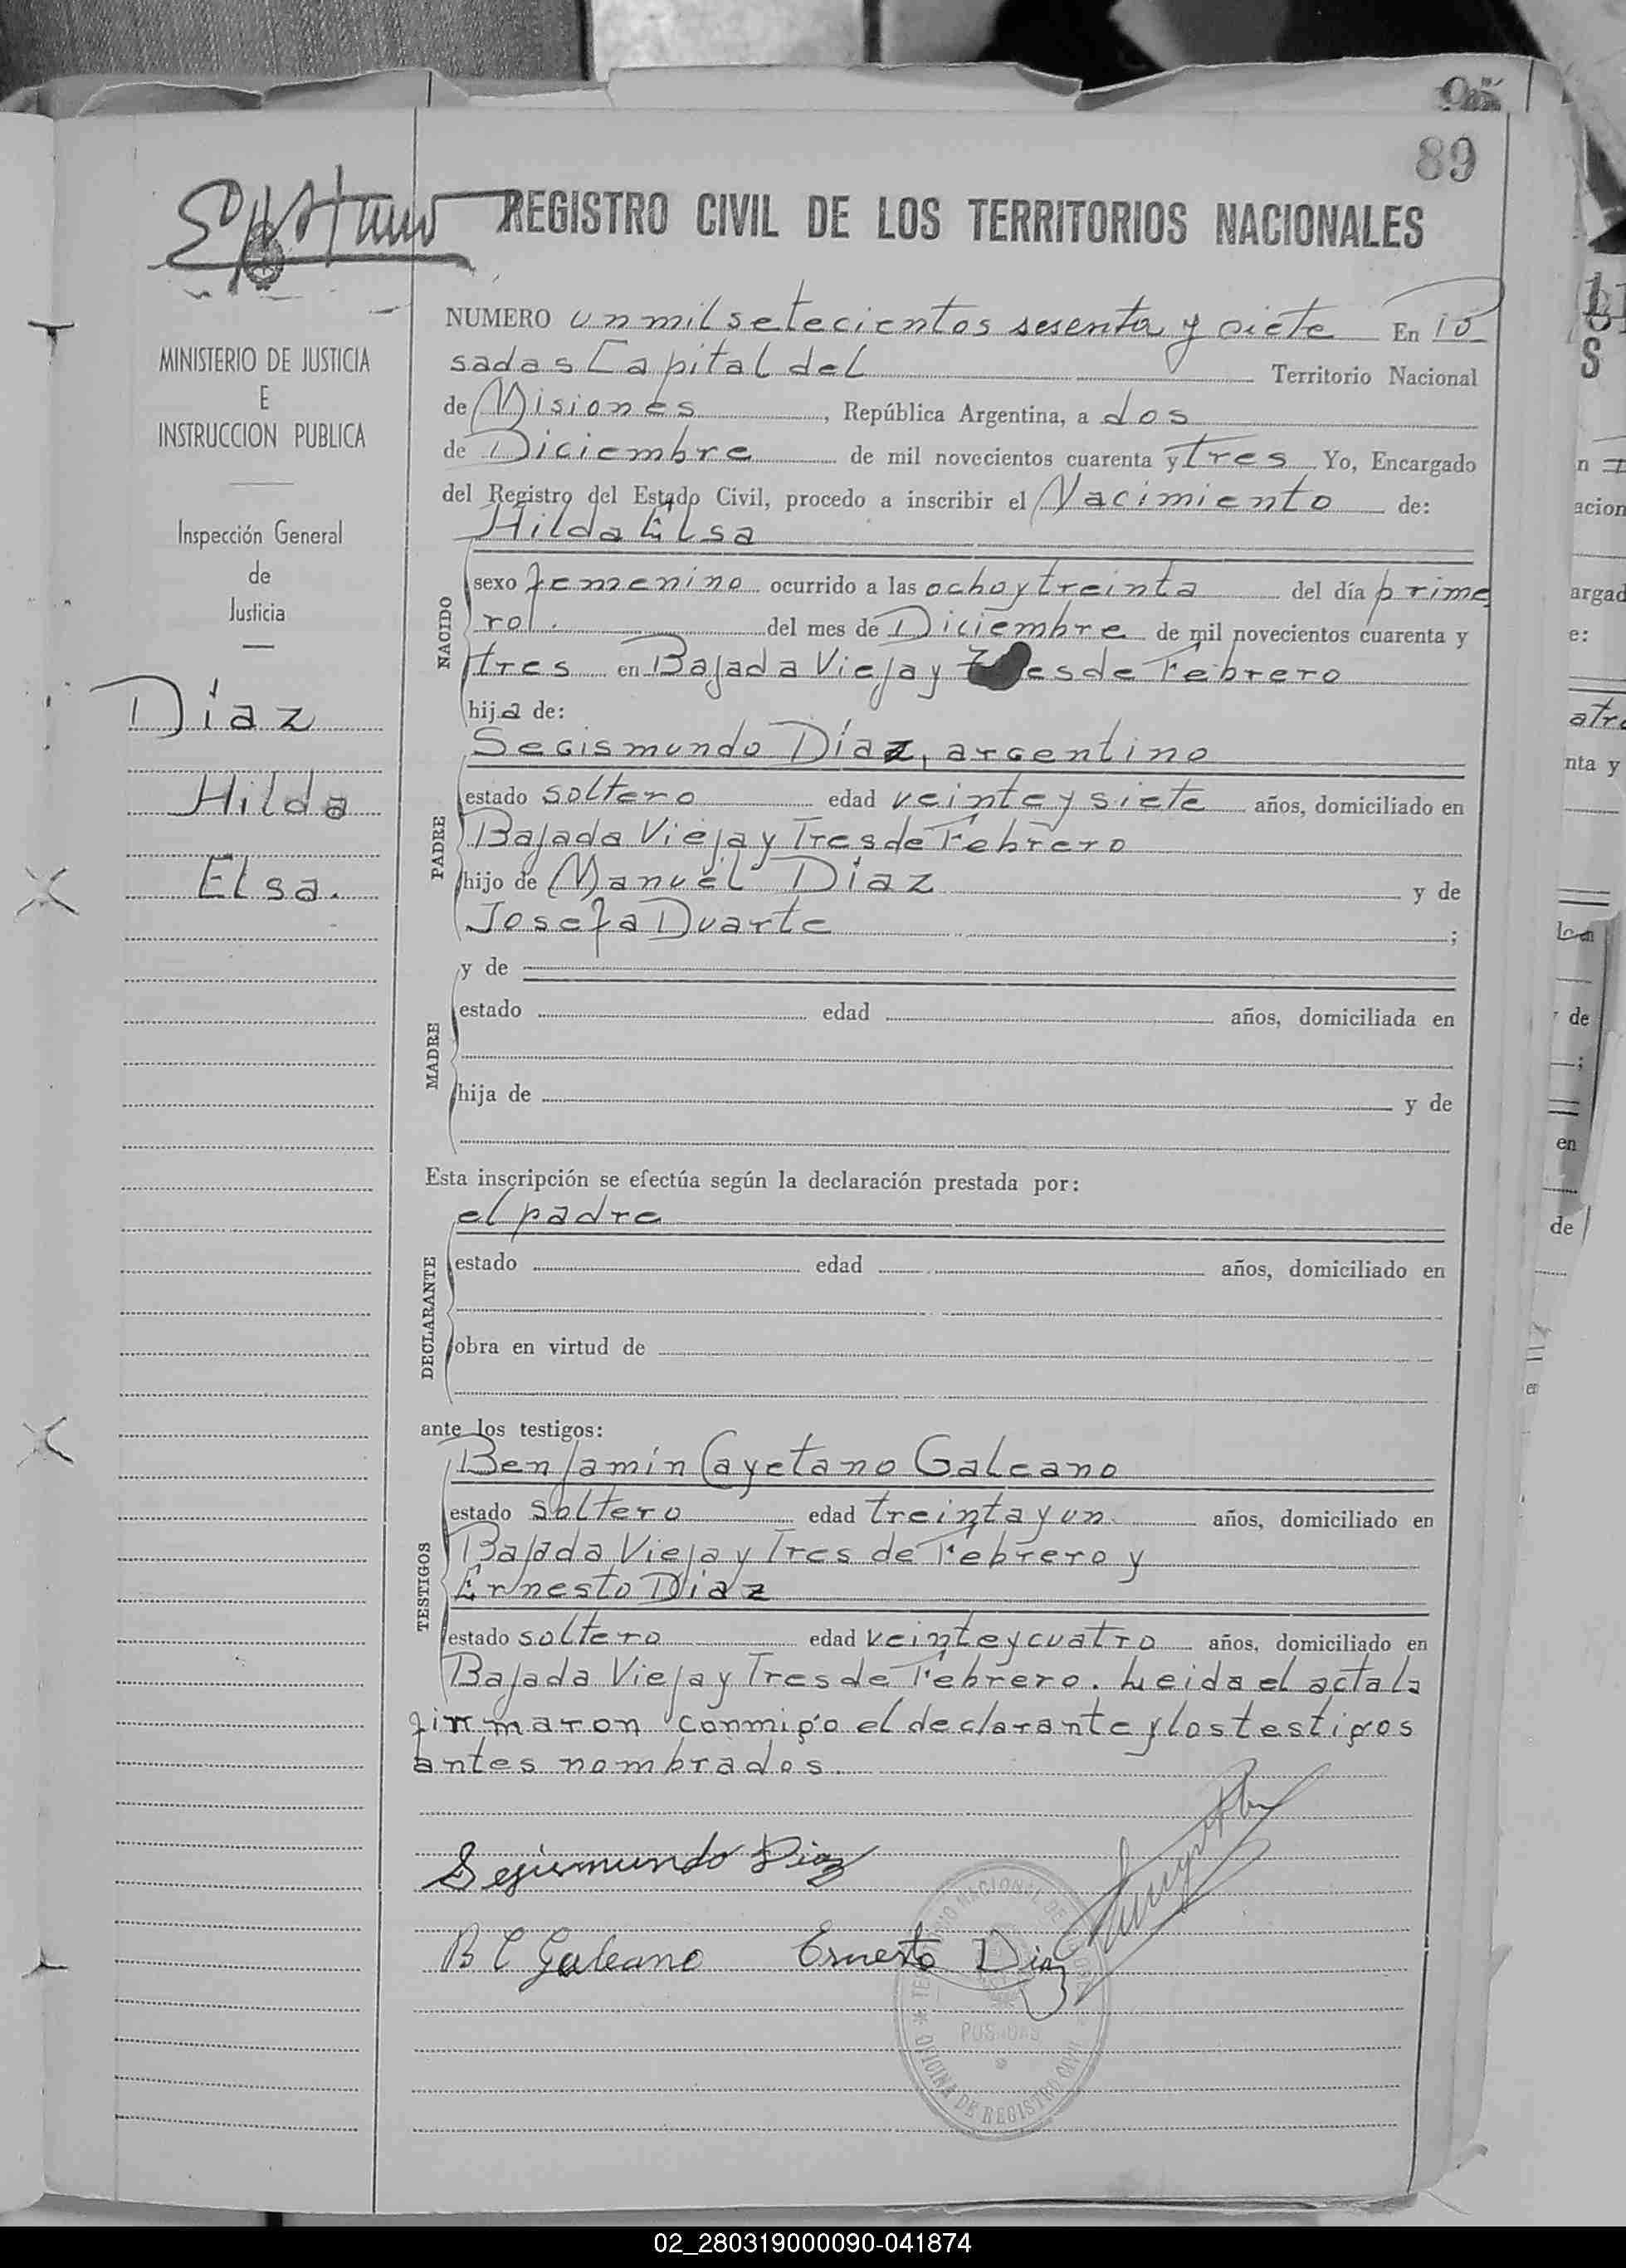 89
REGISTRO CIVIL DE LOS TERRITORIOS NACIONALES
MINISTERIO DE JUSTICIA
E
INSTRUCCION PUBLICA
Inspección General
de
Justicia
Díaz
Hilda
Elsa.
NUMERO un mil setecientos sesenta y siete En Po
sadas Capital del Territorio Nacional
de Misiones, República Argentina, a dos
de Diciembre de mil novecientos cuarenta y tres Yo, Encargado
del Registro del Estado Civil, procedo a inscribir el Nacimiento de:
Hilda Elsa
NACIDO
sexo femenino ocurrido a las ocho y treinta del día prime
ro. del mes de Diciembre de mil novecientos cuarenta y
tres en Bajada Vieja y de Febrero
hija de:
PADRE
Segismundo Díaz, argentino
estado soltero edad veinte y siete años, domiciliado en
Bajada Vieja y Tres de Febrero
hijo de Manuel Díaz y de
Josefa Duarte ;
MADRE
y de
estado edad años, domiciliada en
hija de y de
Esta inscripción se efectúa según la declaración prestada por:
DECLARANTE
el padre
estado edad años, domiciliado en
obra en virtud de
ante los testigos:
TESTIGOS
Benjamín Cayetano Galeano
estado soltero edad treinta y un años, domiciliado en
Bajada Vieja y Tres de Febrero y
Ernesto Díaz
estado soltero edad veinte y cuatro años, domiciliado en
Bajada Vieja y Tres de Febrero. Leida el acta la
firmaron conmigo el declarante y los testigos
antes nombrados.
Segismundo Diaz
B C Galeano Ernesto Diaz
POSADAS
OFICINA DE REGISTRO CIVIL
02_280319000090-041874